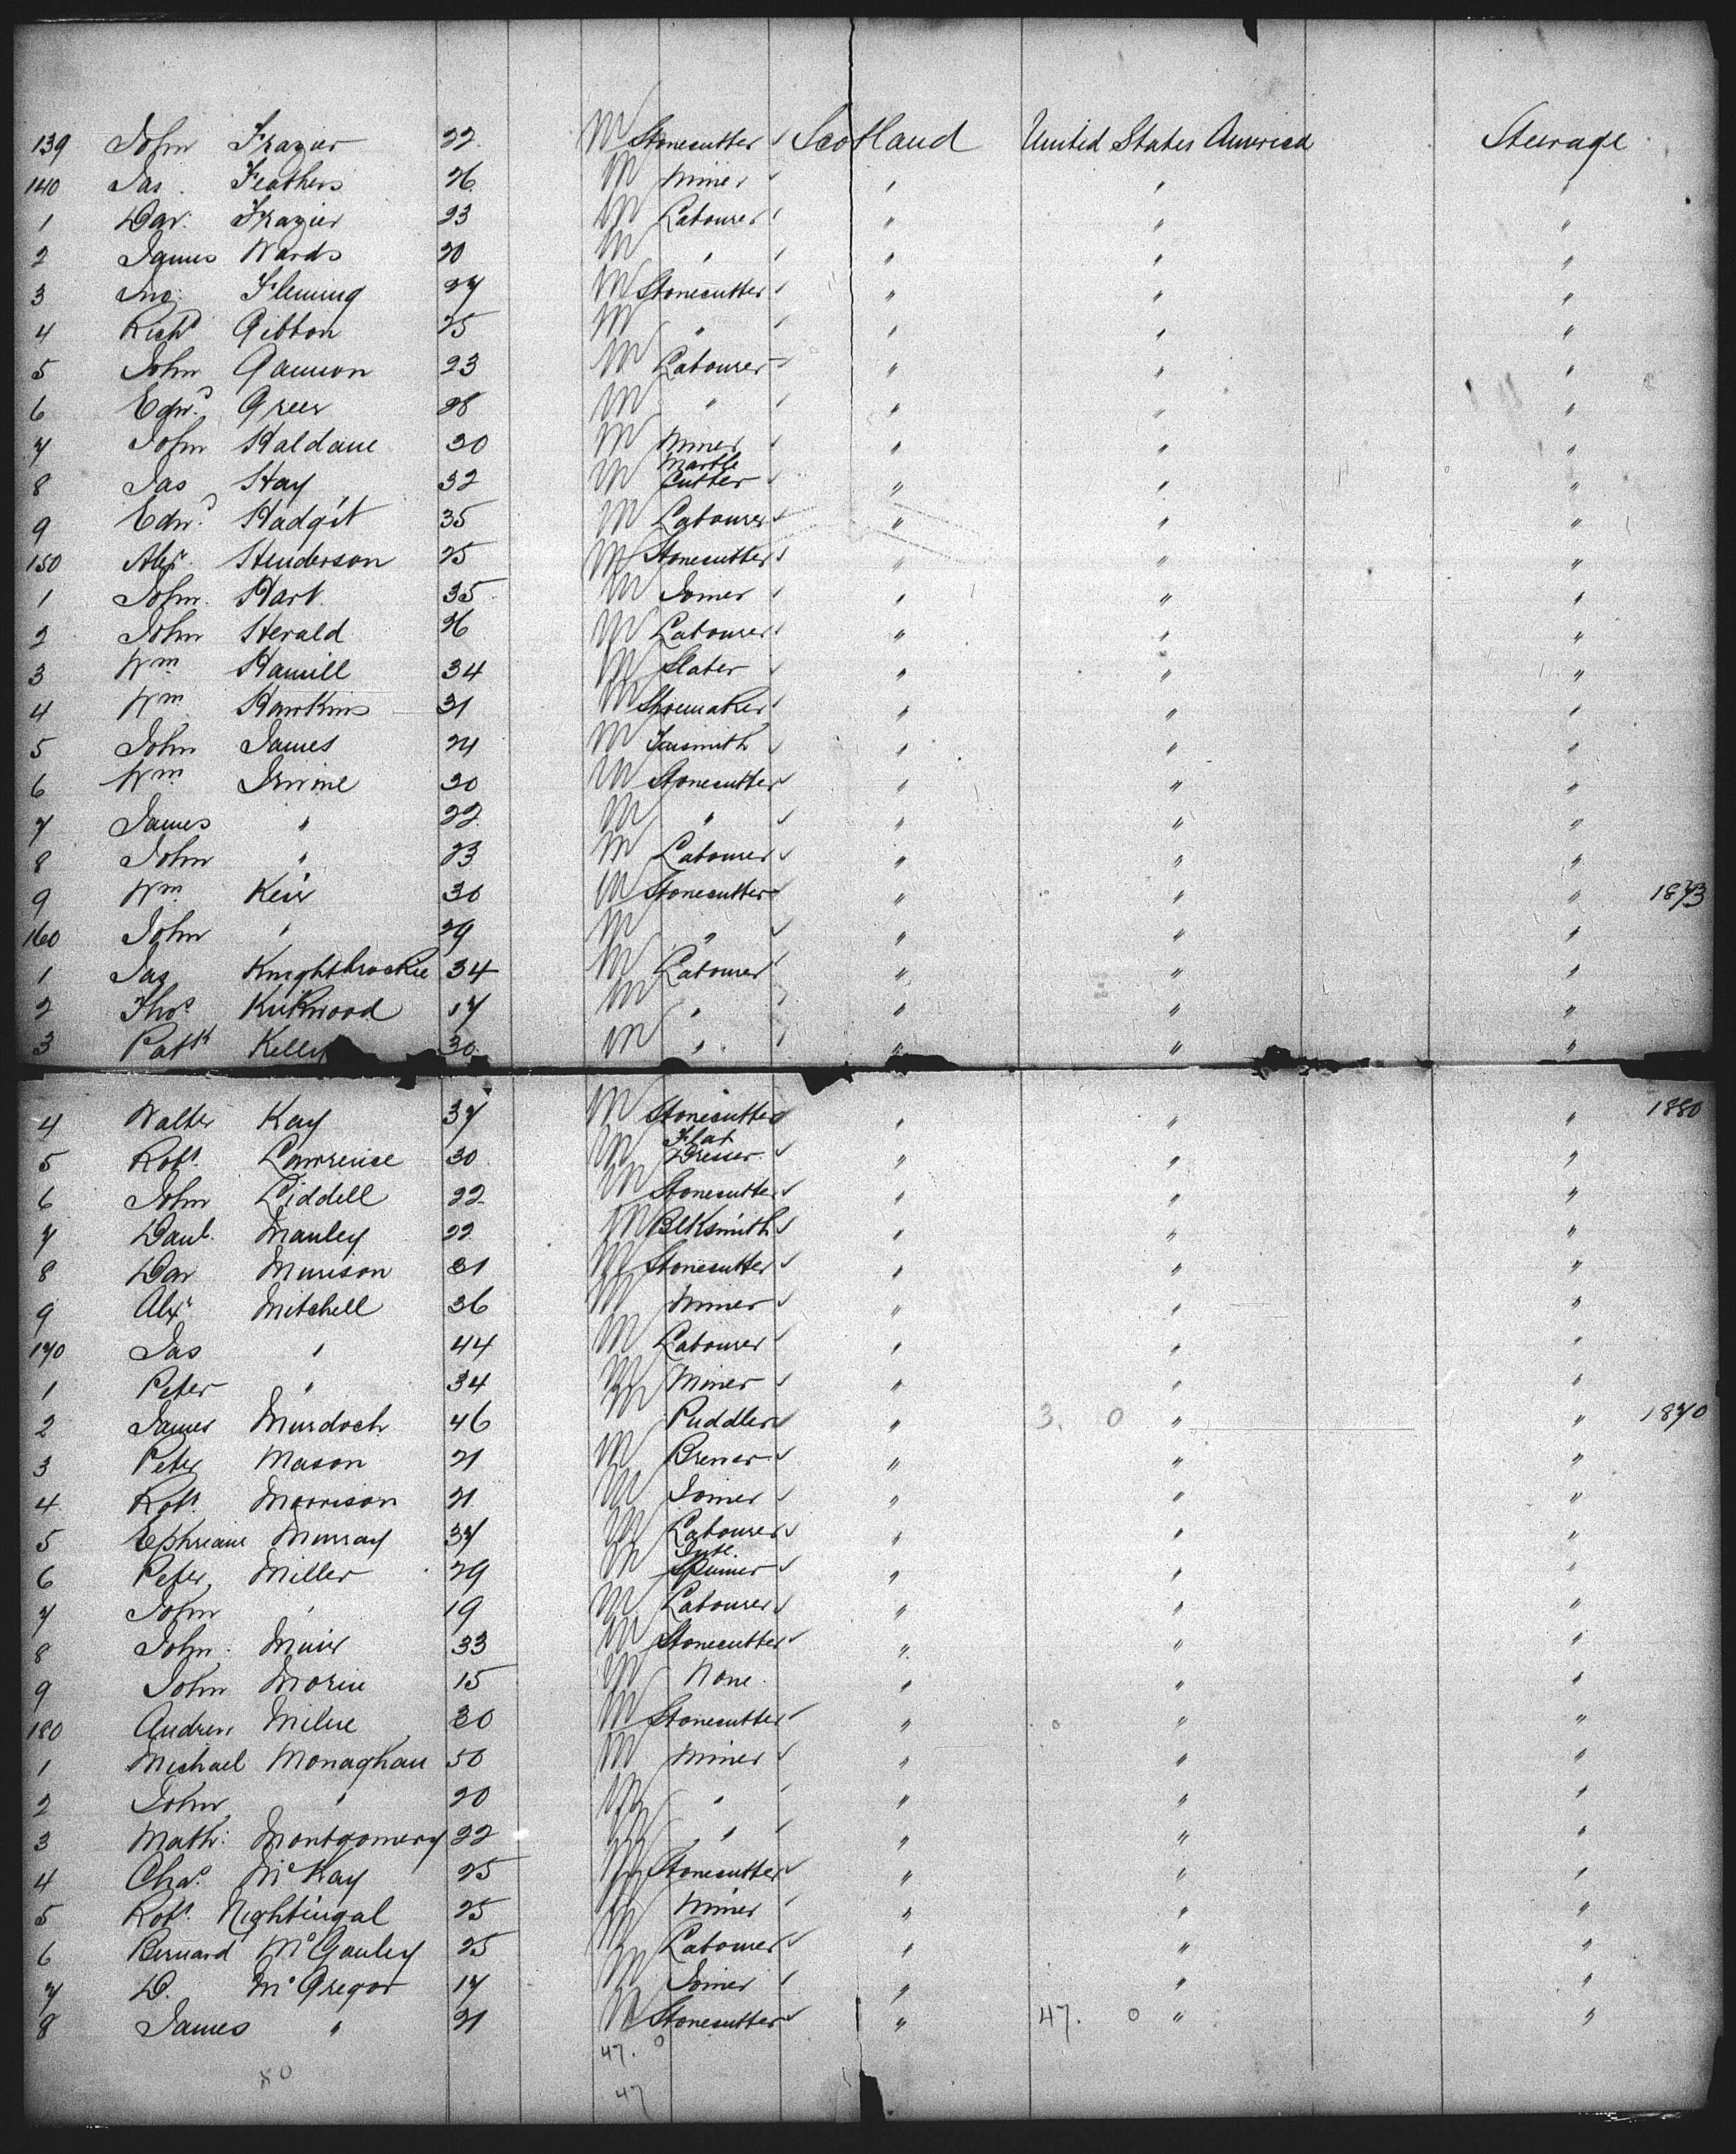 139 John Frazier 22. M Stonecutter ✓ Scotland United States America Steerage
140 Jas. Feathers 26 M Miner ✓ " " "
1 Dav. Frazier 23 M Labourer ✓ " " "
2 James Wards 20 M " ✓ " " "
3 Jno. Fleming 27 M Stonecutter ✓ " " "
4 Richd Gibbon 25 M " ✓ " " "
5 John Gannon 23 M Labourer ✓ " " "
6 Edwd. Greer 28 M " ✓ " " "
7 John Haldane 30 M Miner ✓ " " "
8 Jas Hay 32 M Marble Cutter ✓ " " "
9 Edwd. Hadgit 35 M Labourer ✓ " " "
150 Alexr. Henderson 25 M Stonecutter ✓ " " "
1 John. Hart. 35 M Joiner ✓ " " "
2 John Herald 26 M Labourer ✓ " " "
3 Wm Hamill 34 M Slater ✓ " " "
4 Wm. Hawkins 31 M Shoemaker ✓ " " "
5 John James 24 M Tinsmith ✓ " " "
6 Wm Irvine 30 M Stonecutter ✓ " " "
7 James " 22. M " ✓ " " "
8 John " 23 M Labourer ✓ " " "
9 Wm. Keir 30 M Stonecutter ✓ " " " 1873
160 John " 29 M " ✓ " " "
1 Jas Knightbrockie 34 M Labourer ✓ " " "
2 Thos. Kirkwood 17 M " ✓ " " "
3 Patk Kelly 30. M " ✓ " " "
4 Walter Kay 37 M Stonecutter ✓ " " " 1880
5 Robt. Lawrence 30 M Flax Dresser ✓ " " "
6 John Liddell 22 M Stonecutter ✓ " " "
7 Danl. Manley 22 M Blksmith ✓ " " "
8 Dav Murison 31 M Stonecutter ✓ " " "
9 Alexr Mitchell 36 M Miner ✓ " " "
170 Jas " 44 M Labourer ✓ " " "
1 Peter " 34 M Miner ✓ " " "
2 James Murdoch 46 M Puddler ✓ " 3. 0 " " 1870
3 Peter Mason 21 M Brewer ✓ " " "
4 Robt. Morrison 21 M Joiner ✓ " " "
5 Ephriam Murray 37 M Labourer ✓ " " "
6 Peter Miller 29 M Jute Spinner ✓ " " "
7 John " 19 M Labourer ✓ " " "
8 John. Muir 33 M Stonecutter ✓ " " "
9 John 15 M None. " " "
180 Andrew Milne 30 M Stonecutter ✓ " " "
1 Michael Monaghan 50 M Miner ✓ " " "
2 John " 20 M " ✓ " " "
3 Math: Montgomery 22 M " ✓ " " "
4 Chas. McKay 25 M Stonecutter ✓ " " "
5 Robt. Nightingal 25 M Miner ✓ " " "
6 Bernard McGauley 25 M Labourer ✓ " " "
7 D. McGregor 17 M Joiner ✓ " " "
8 James " 21 M Stonecutter ✓ " 47. 0 " "
47. 0
80
47